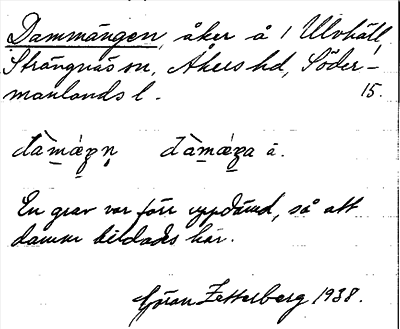 Dammängen, åker å 1 Ulvhäll,
Strängnäs sn, Åkers hd, Söder-
manlands l. 15.
En grav var förr uppdämd, så att
damm bildades här.
Göran Zetterberg 1938.